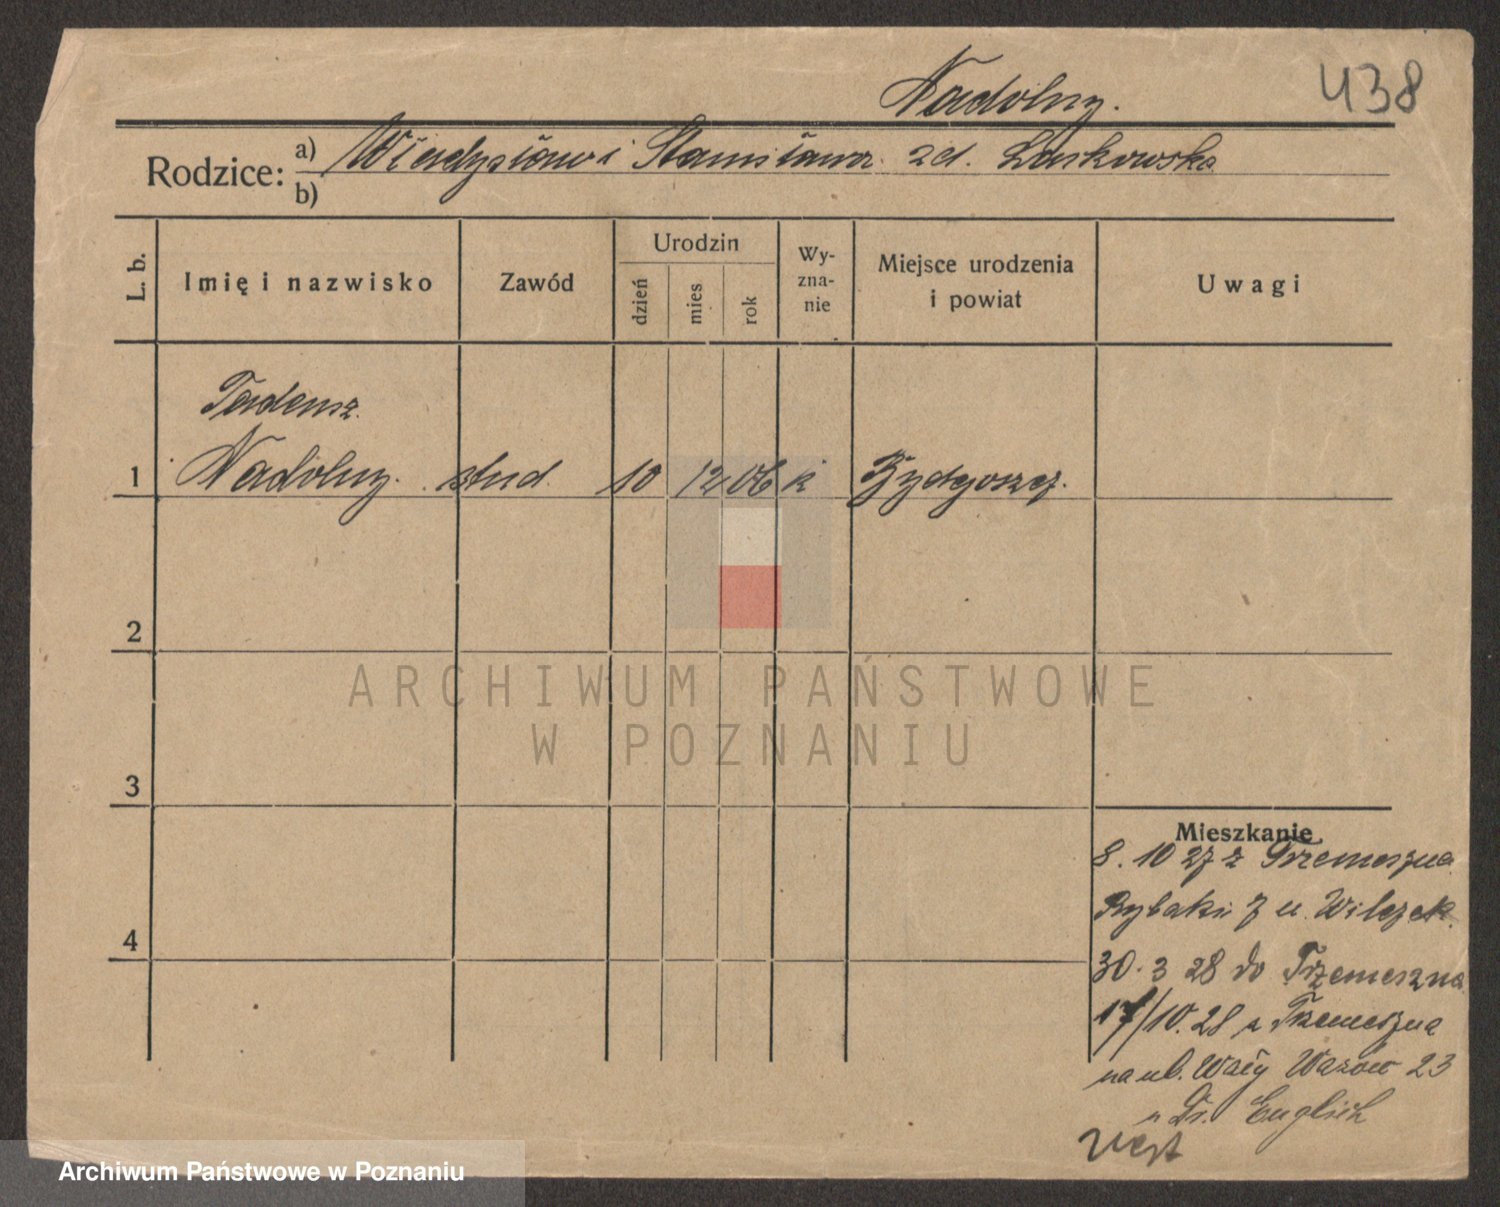 Nadolny.
438
Rodzice: a) Władysław i Stanisława zd. Laskowska
b)
L. b.
Imię i nazwisko
Zawód
Urodzin
dzień
mies
rok
Wy-
zna-
nie
Miejsce urodzenia
i powiat
Uwagi
Tadeusz
1 Nadolny. stud. 10 12 06 k Bydgoszcz.
2
3
4
Mieszkanie
8. 10 27 z Trzemeszna
Rybaki 7 u. Wilczek.
30. 3 28 do Trzemeszna
17/10. 28 z Trzemeszna
na ul. Wały Wazów 23
u Dr. English
ARCHIWUM PAŃSTWOWE
W POZNANIU
Archiwum Państwowe w Poznaniu